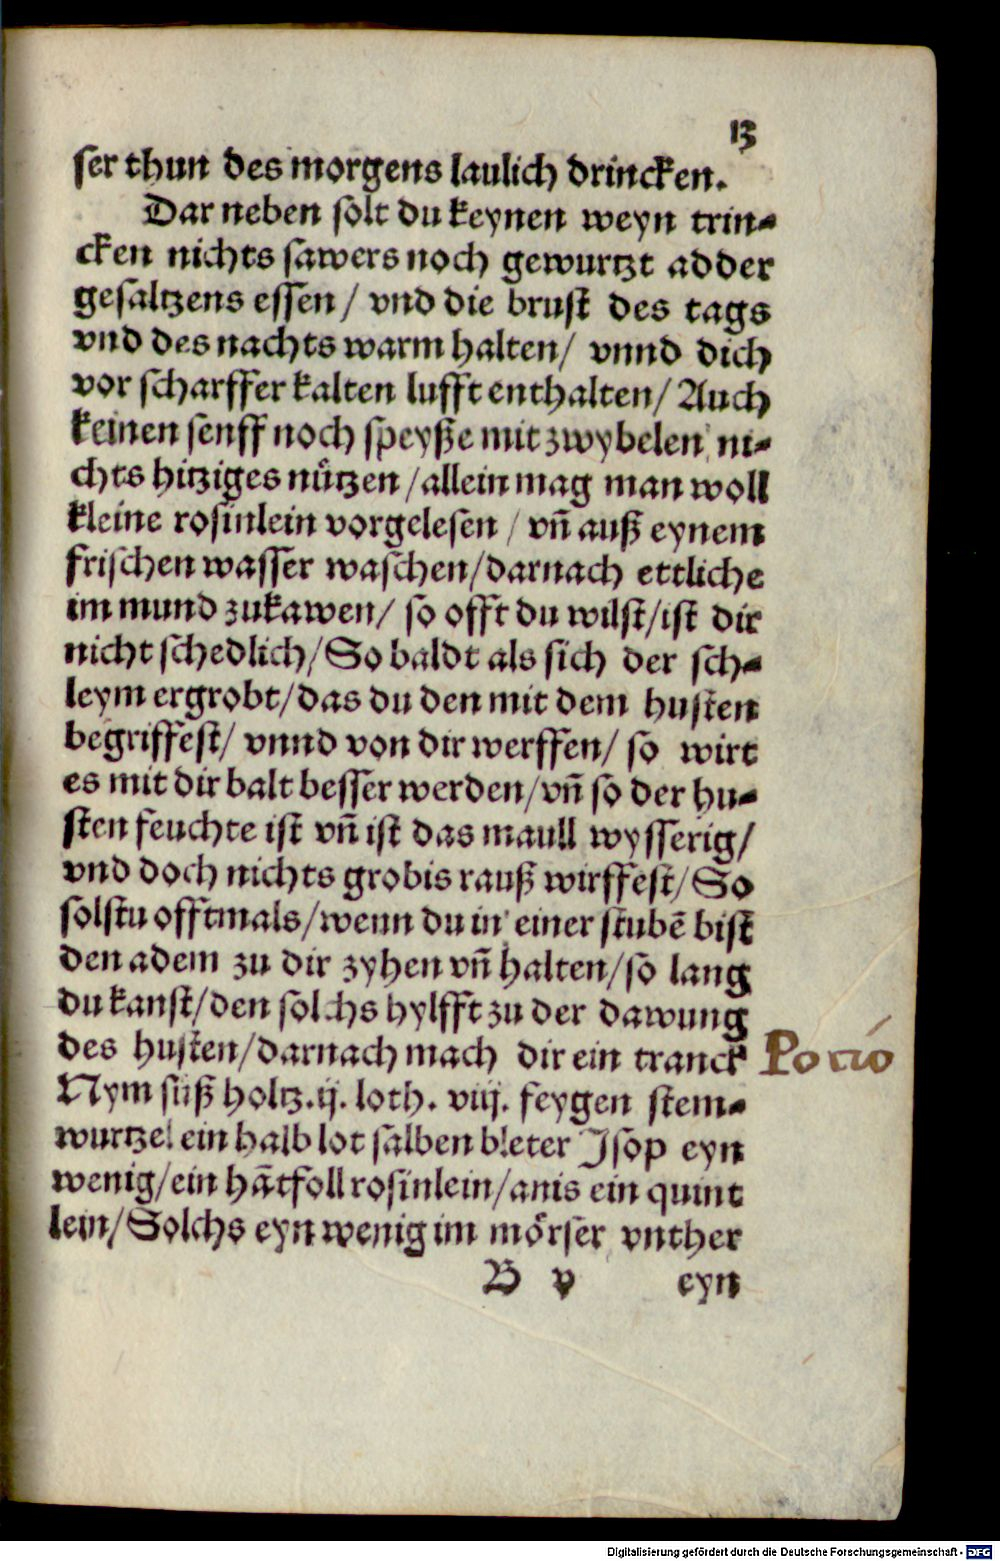 13
ser thun des morgens laulich drincken.
Dar neben solt du keynen weyn trin-
cken nichts sawers noch gewurtzt adder
gesaltzens essen/ vnd die brust des tags
vnd des nachts warm halten/ vnnd dich
vor scharffer kalten lufft enthalten/ Auch
keinen senff noch speyße mit zwybelen ni-
chts hitziges nützen/allein mag man woll
kleine rosinlein vorgelesen/ vñ auß eynem
frischen wasser waschen/darnach ettliche
im mund zukawen/ so offt du wilst/ist dir
nicht schedlich/So baldt als sich der sch-
leym ergrobt/das du den mit dem husten
begriffest/ vnnd von dir werffen/ so wirt
es mit dir balt besser werden/vñ so der hu-
sten feuchte ist vñ ist das maull wysserig/
vnd doch nichts grobis rauß wirffest/So
solstu offtmals/wenn du in einer stubē bist
den adem zu dir zyhen vñ halten/so lang
du kanst/den solchs hylfft zu der dawung
des husten/darnach mach dir ein tranck
Potio
Nym süß holtz.ij. loth. viij. feygen stem-
wurtzel ein halb lot salben bleter Jsop eyn
wenig/ein hātfoll rosinlein/anis ein quint
lein/Solchs eyn wenig im mörser vnther
B v eyn
Digitalisierung gefördert durch die Deutsche Forschungsgemeinschaft - DFG